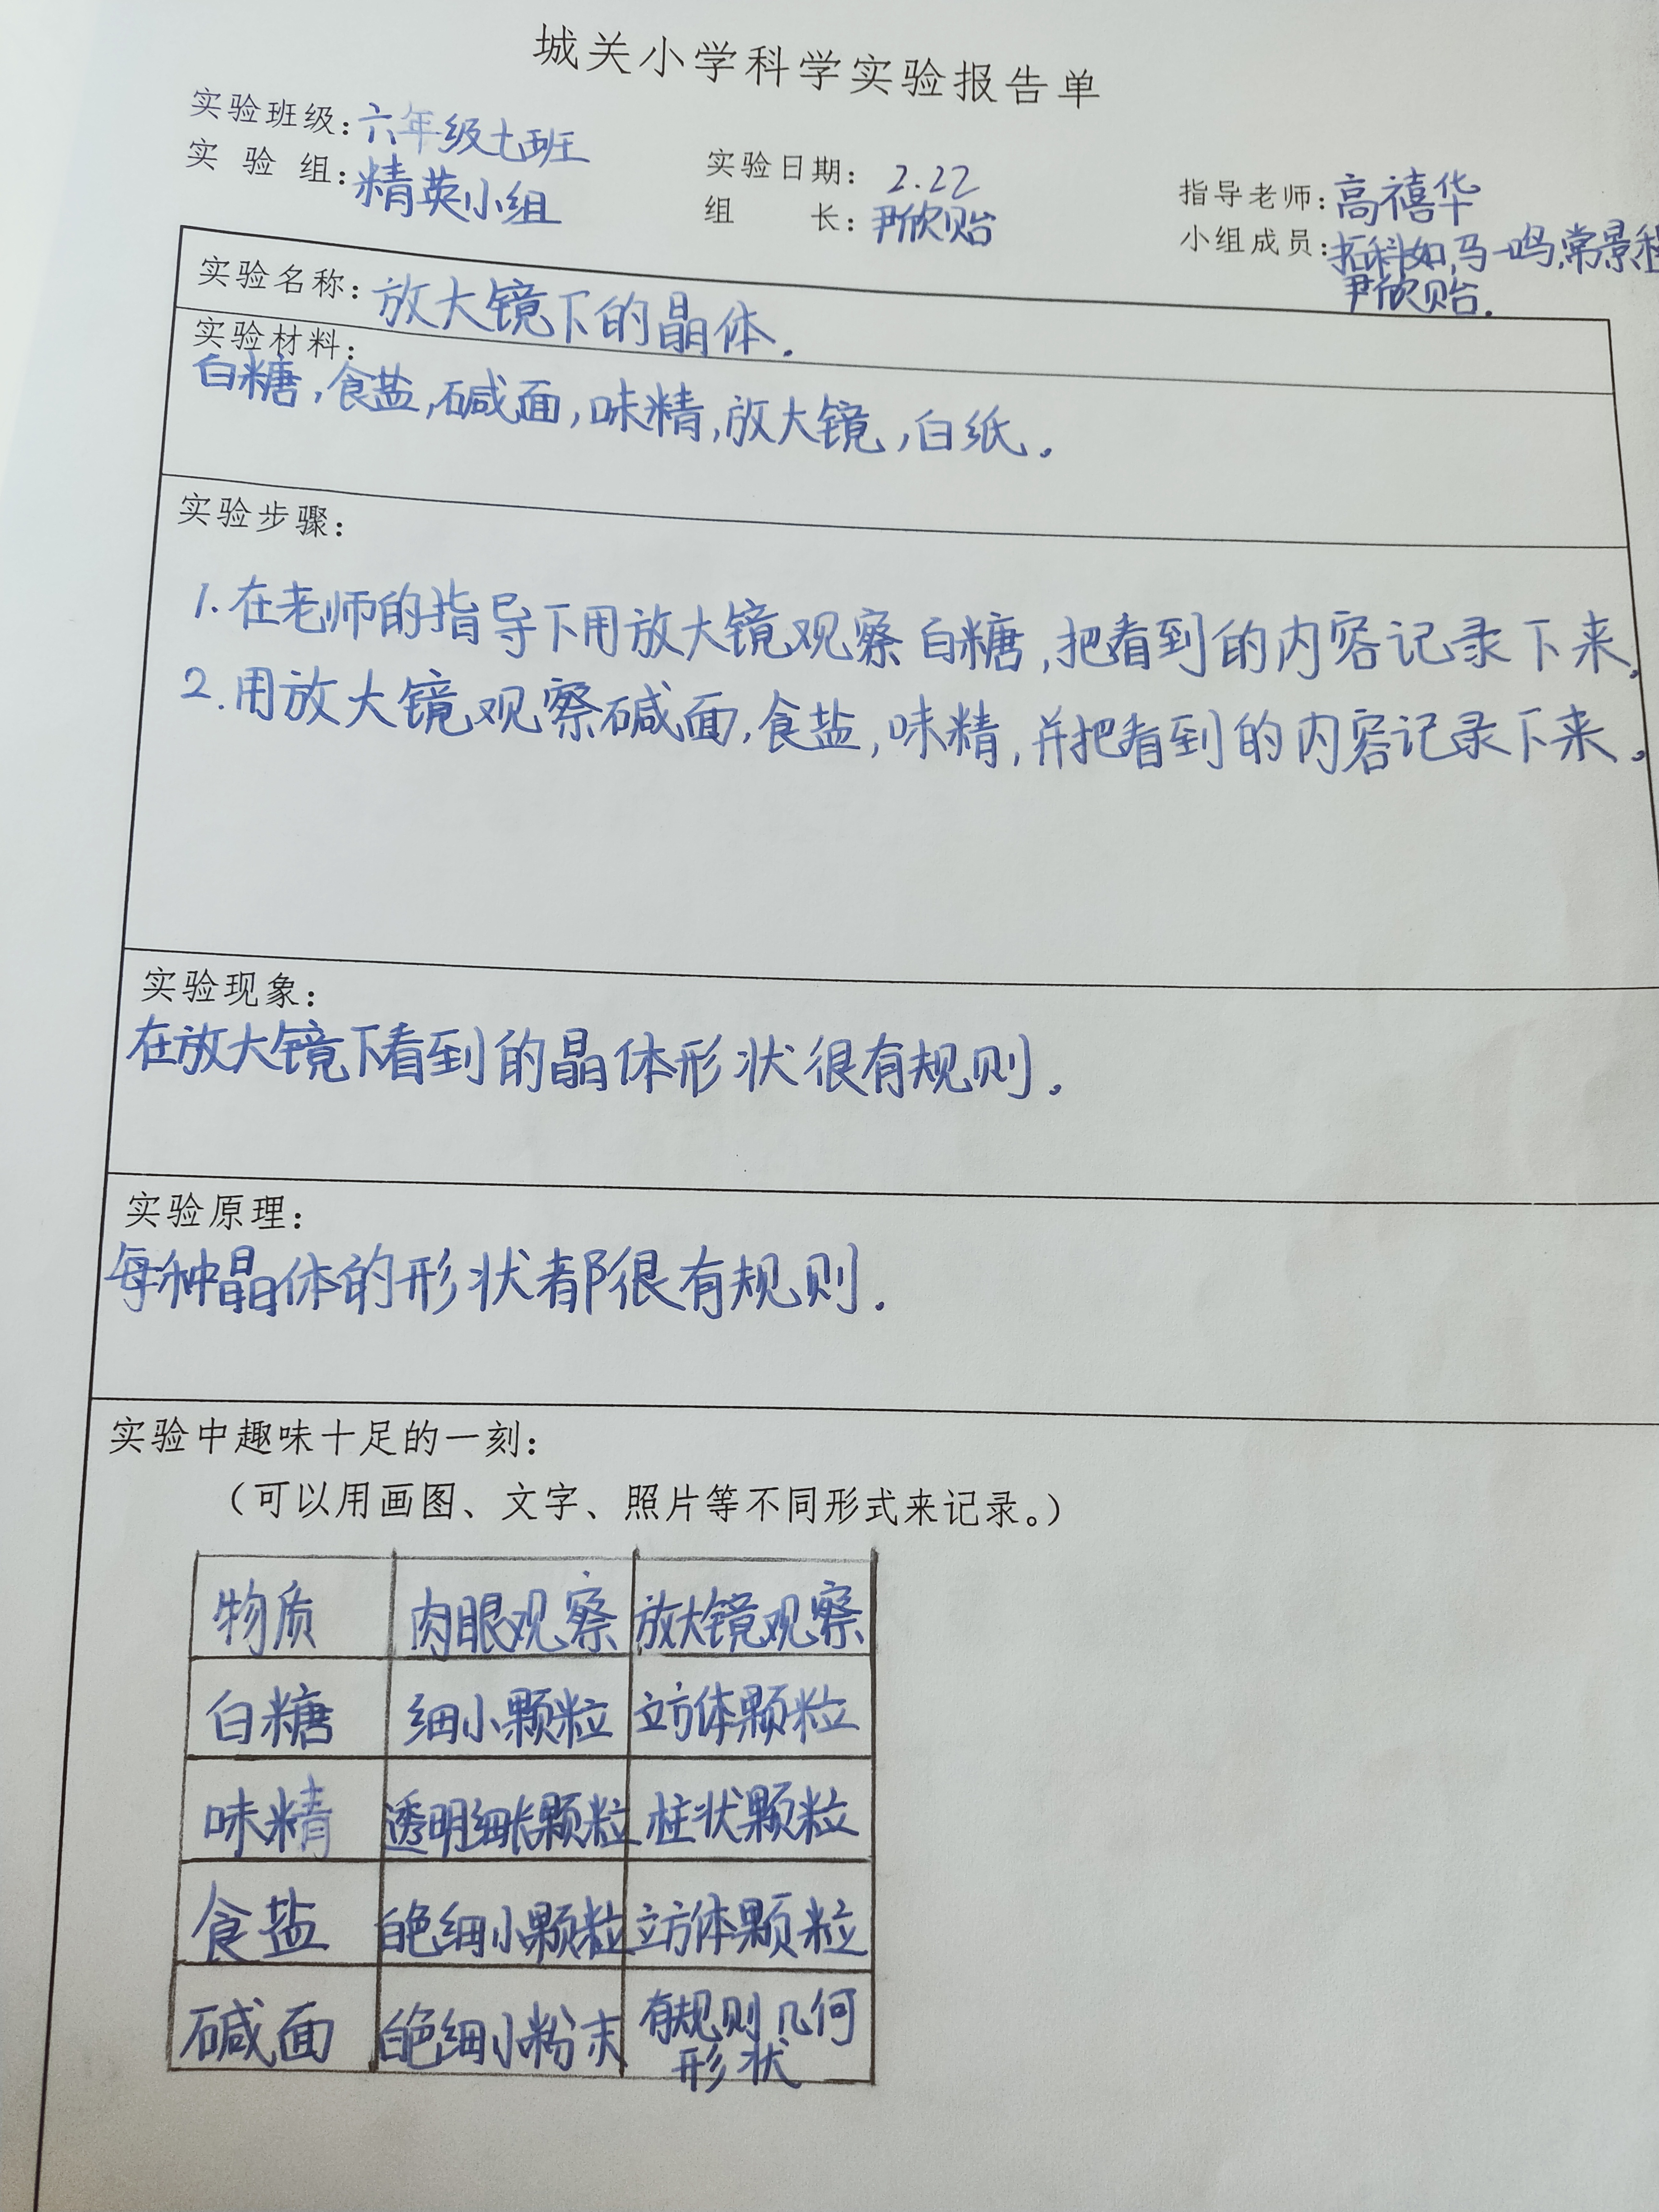 城关小学科学实验报告单
实验班级:六年级七班
实验组:精英小组
实验日期:2.22
组长:尹欣贻
指导老师:高禧华
小组成员:拓科如,马一鸣,常景程
尹欣贻.
实验名称:放大镜下的晶体.
实验材料:
白糖,食盐,碱面,味精,放大镜,白纸。
实验步骤:
1.在老师的指导下用放大镜观察白糖,把看到的内容记录下来,
2.用放大镜观察碱面,食盐,味精,并把看到的内容记录下来。
实验现象:
在放大镜下看到的晶体形状很有规则。
实验原理:
每种晶体的形状都很有规则.
实验中趣味十足的一刻:
(可以用画图、文字、照片等不同形式来记录。)
物质 肉眼观察 放大镜观察
白糖 细小颗粒 立方体颗粒
味精 透明细长颗粒 柱状颗粒
食盐 白色细小颗粒 立方体颗粒
碱面 白色细小粉末 有规则几何
形状